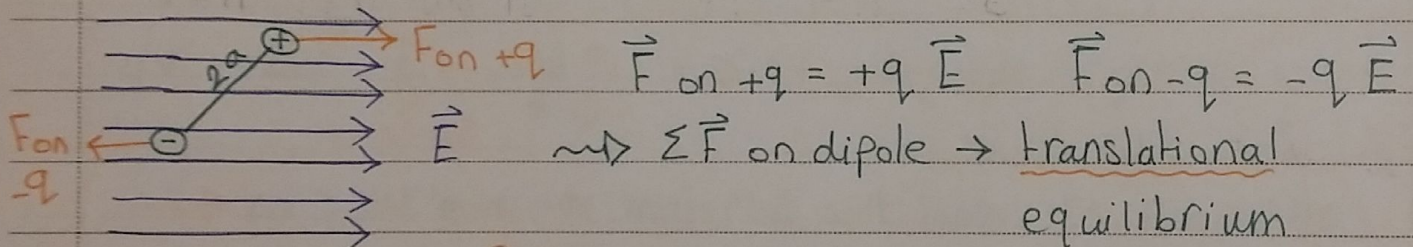 +
2a
Fon +q
F⃗ on +q = +q E⃗    F⃗ on -q = -q E⃗
Fon
-q
-
E⃗
~> ΣF⃗ on dipole → translational
equilibrium